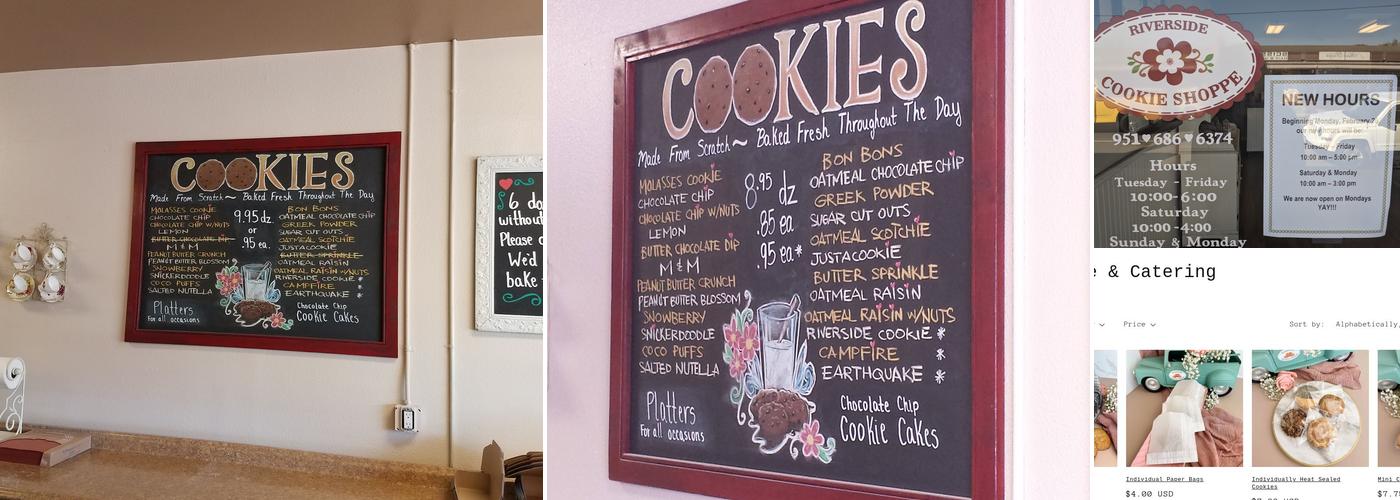 COOKIES
Made From Scratch ~ Baked Fresh Throughout The Day
MOLASSES COOKIE
CHOCOLATE CHIP
CHOCOLATE CHIP W/NUTS
LEMON
BUTTER CHOCOLATE DIP
M & M
PEANUT BUTTER CRUNCH
PEANUT BUTTER BLOSSOM
SNOWBERRY
SNICKERDOODLE
COCO PUFFS
SALTED NUTELLA
9.95 dz.
or
.95 ea.
BON BONS
OATMEAL CHOCOLATE CHIP
GREEK POWDER
SUGAR CUT OUTS
OATMEAL SCOTCHIE
JUST A COOKIE
BUTTER SPRINKLE
OATMEAL RAISIN
OATMEAL RAISIN W/NUTS
RIVERSIDE COOKIE *
CAMPFIRE *
EARTHQUAKE *
Platters
For all occasions
Chocolate Chip
Cookie Cakes
6 do
without
Please c
We'd
bake
COOKIES
Made From Scratch ~ Baked Fresh Throughout The Day
MOLASSES COOKIE
CHOCOLATE CHIP
CHOCOLATE CHIP W/NUTS
LEMON
BUTTER CHOCOLATE DIP
M & M
PEANUT BUTTER CRUNCH
PEANUT BUTTER BLOSSOM
SNOWBERRY
SNICKERDOODLE
COCO PUFFS
SALTED NUTELLA
8.95 dz
.85 ea.
.95 ea*
BON BONS
OATMEAL CHOCOLATE CHIP
GREEK POWDER
SUGAR CUT OUTS
OATMEAL SCOTCHIE
JUST A COOKIE
BUTTER SPRINKLE
OATMEAL RAISIN
OATMEAL RAISIN W/NUTS
RIVERSIDE COOKIE *
CAMPFIRE *
EARTHQUAKE *
Platters
For all occasions
Chocolate Chip
Cookie Cakes
RIVERSIDE
COOKIE SHOPPE
951♥686♥6374
Hours
Tuesday - Friday
10:00-6:00
Saturday
10:00-4:00
Sunday & Monday
NEW HOURS
Beginning Monday, February
our new hours will be:
Tuesday - Friday
10:00 am – 5:00 pm
Saturday & Monday
10:00 am – 3:00 pm
We are now open on Mondays
YAY!!!
e & Catering
Price
Sort by: Alphabetically,
Individual Paper Bags
$4.00 USD
Individually Heat Sealed
Cookies